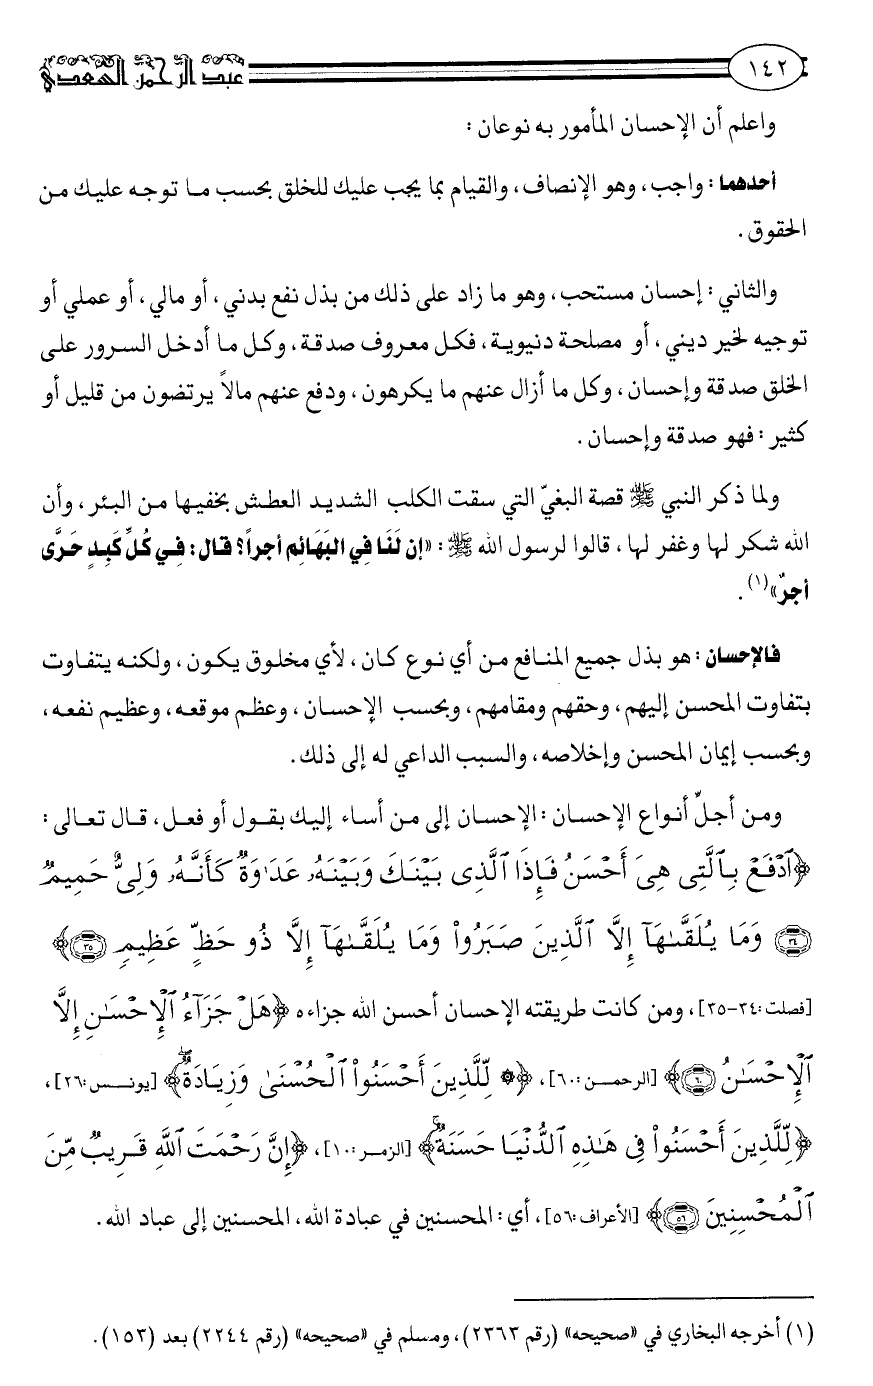 ١٤٢ عبد الرحمن السعدي
واعلم أن الإحسان المأمور به نوعان :
أحدهما : واجب، وهو الإنصاف، والقيام بما يجب عليك للخلق بحسب ما توجه عليك من
الحقوق .
والثاني : إحسان مستحب، وهو ما زاد على ذلك من بذل نفع بدني، أو مالي، أو عملي أو
توجيه لخير ديني، أو مصلحة دنيوية، فكل معروف صدقة، وكل ما أدخل السرور على
الخلق صدقة وإحسان، وكل ما أزال عنهم ما يكرهون، ودفع عنهم مالاً يرتضون من قليل أو
كثير : فهو صدقة وإحسان .
ولما ذكر النبي ﷺ قصة البغيّ التي سقت الكلب الشديد العطش بخفيها من البئر، وأن
الله شكر لها وغفر لها، قالوا لرسول الله ﷺ : «إن لَنَا فِي البَهَائِم أجراً؟ قال: فِي كُلِّ كَبِدٍ حَرَّى
أجرٌ»(١) .
فالإحسان : هو بذل جميع المنافع من أي نوع كان، لأي مخلوق يكون، ولكنه يتفاوت
بتفاوت المحسن إليهم، وحقهم ومقامهم، وبحسب الإحسان، وعظم موقعه، وعظيم نفعه،
وبحسب إيمان المحسن وإخلاصه، والسبب الداعي له إلى ذلك.
ومن أجلِّ أنواع الإحسان : الإحسان إلى من أساء إليك بقول أو فعل، قال تعالى :
﴿ٱدۡفَعۡ بِٱلَّتِي هِيَ أَحۡسَنُ فَإِذَا ٱلَّذِي بَيۡنَكَ وَبَيۡنَهُۥ عَدَٰوَةٞ كَأَنَّهُۥ وَلِيٌّ حَمِيمٞ
٣٤ وَمَا يُلَقَّىٰهَآ إِلَّا ٱلَّذِينَ صَبَرُواْ وَمَا يُلَقَّىٰهَآ إِلَّا ذُو حَظٍّ عَظِيمٖ ٣٥﴾
[فصلت:٣٤-٣٥]، ومن كانت طريقته الإحسان أحسن الله جزاءه ﴿هَلۡ جَزَآءُ ٱلۡإِحۡسَٰنِ إِلَّا
ٱلۡإِحۡسَٰنُ ٦٠﴾ [الرحمن:٦٠]، ﴿۞ لِّلَّذِينَ أَحۡسَنُواْ ٱلۡحُسۡنَىٰ وَزِيَادَةٞۖ﴾ [يونس:٢٦]،
﴿لِلَّذِينَ أَحۡسَنُواْ فِي هَٰذِهِ ٱلدُّنۡيَا حَسَنَةٞۗ﴾ [الزمر:١٠]، ﴿إِنَّ رَحۡمَتَ ٱللَّهِ قَرِيبٞ مِّنَ
ٱلۡمُحۡسِنِينَ ٥٦﴾ [الأعراف:٥٦]، أي : المحسنين في عبادة الله، المحسنين إلى عباد الله.
(١) أخرجه البخاري في «صحيحه» (رقم ٢٣٦٣)، ومسلم في «صحيحه» (رقم ٢٢٤٤) بعد (١٥٣).